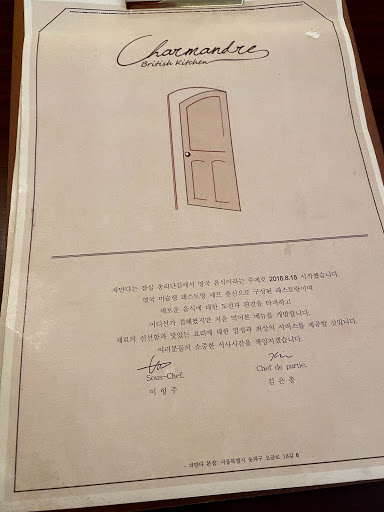 Charmandre
British Kitchen
차만다는 잠실 송리단길에서 영국 음식이라는 주제로 2018.8.18 시작했습니다.
영국 미슐랭 레스토랑 셰프 출신으로 구성된 레스토랑이며
새로운 음식에 대한 도전과 편견을 타파하고
어디선가 접해봤지만 처음 먹어본 메뉴를 개발합니다.
재료의 신선함과 맛있는 요리에 대한 열정과 최상의 서비스를 제공할 것입니다.
여러분들의 소중한 식사시간을 책임지겠습니다.
Sous-Chef. Chef de partie.
이형주 김은총
- 차만다 본점: 서울특별시 송파구 오금로 18길 6